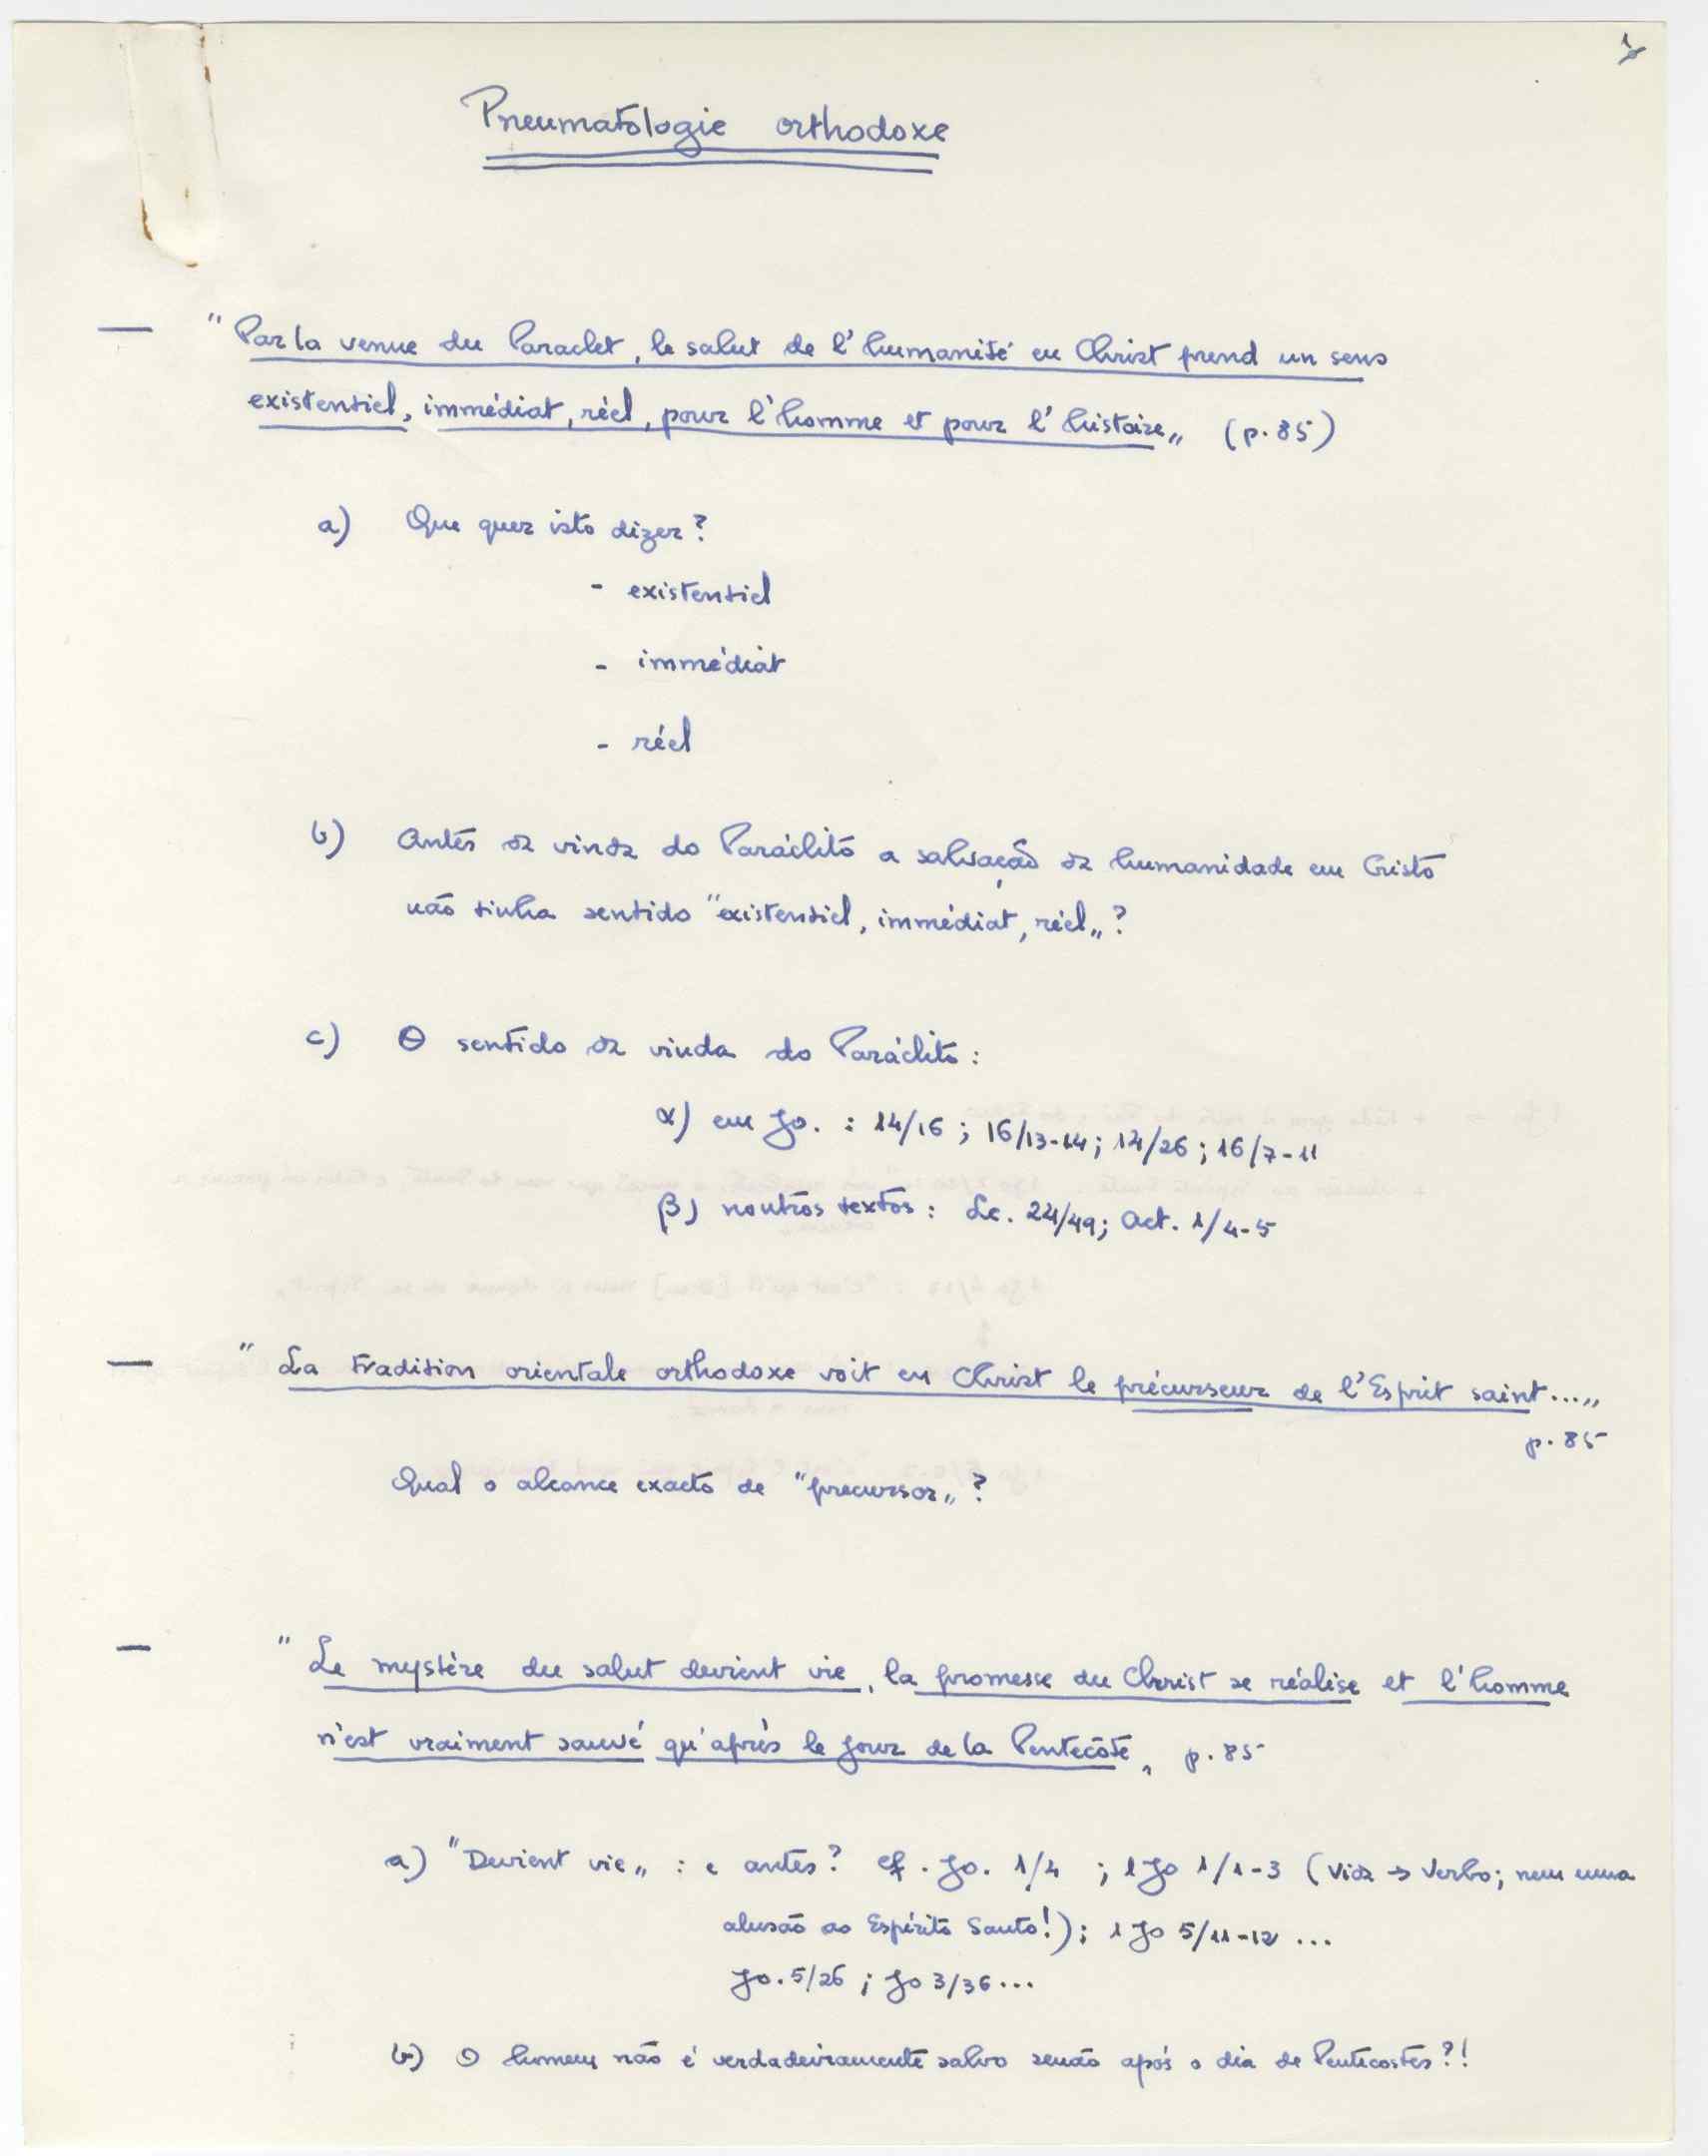 1
Pneumatologie orthodoxe
— " Par la venue du Paraclet, le salut de l'humanité en Christ prend un sens
existentiel, immédiat, réel, pour l'homme et pour l'histoire„ (p. 85)
a) Que quer isto dizer?
- existentiel
- immédiat
- réel
b) Antes da vinda do Paráclito a salvação da humanidade em Cristo
não tinha sentido "existentiel, immédiat, réel„?
c) O sentido da vinda do Paráclito:
α) em Jo. : 14/16 ; 16/13-14; 14/26 ; 16/7-11
β) noutros textos : Lc. 24/49; Act. 1/4-5
— " La tradition orientale orthodoxe voit en Christ le précurseur de l'Esprit saint...„
p. 85
Qual o alcance exacto de "precursor„?
— " Le mystère du salut devient vie, la promesse du Christ se réalise et l'homme
n'est vraiment sauvé qu'après le jour de la Pentecôte„ p. 85
a) "Devient vie„ : e antes? cf. Jo. 1/4 ; 1 Jo 1/1-3 (Vida → Verbo; nem uma
alusão ao Espírito Santo!); 1 Jo 5/11-12 ...
Jo. 5/26 ; Jo 3/36...
b) O homem não é verdadeiramente salvo senão após o dia de Pentecostes?!